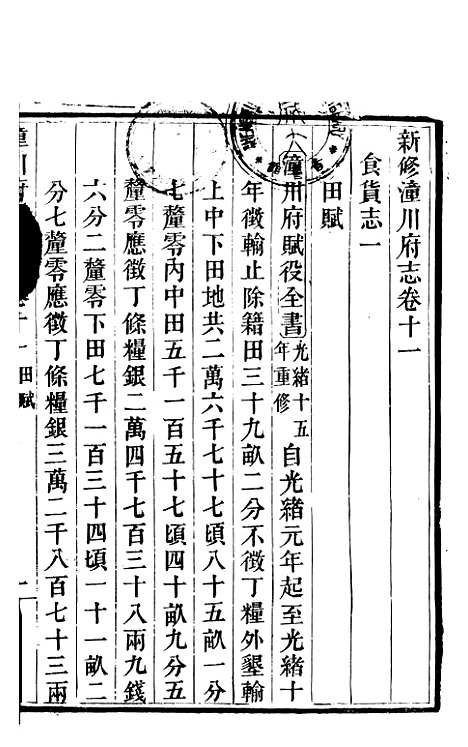 新修潼川府志卷十一
食貨志一
田賦
潼川府賦役全書光緒十五年重修自光緒元年起至光緒十
年徵輸止除籍田三十九畝二分不徵丁糧外墾輸
上中下田地共二萬六千七十七頃八十五畝一分
七釐零內中田五千一百五十七頃四十畝九分五
釐零應徵丁條糧銀二萬四千七百三十八兩九錢
六分二釐零下田七千一百三十四頃一十一畝二
分七釐零應徵丁條糧銀三萬二千八百七十三兩
田賦
一